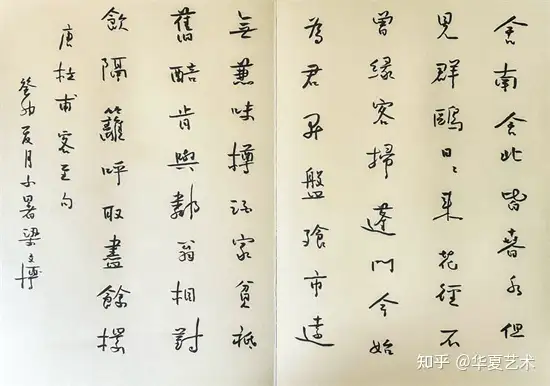 舍南舍北皆春水但
見群鷗日〻來花徑不
曾緣客掃蓬門今始
為君開盤飱市遠
無兼味樽酒家貧祗
舊醅肯與鄰翁相對
飲隔籬呼取盡餘杯
唐杜甫客至句
癸卯夏月小暑梁文博
知乎 @华夏艺术